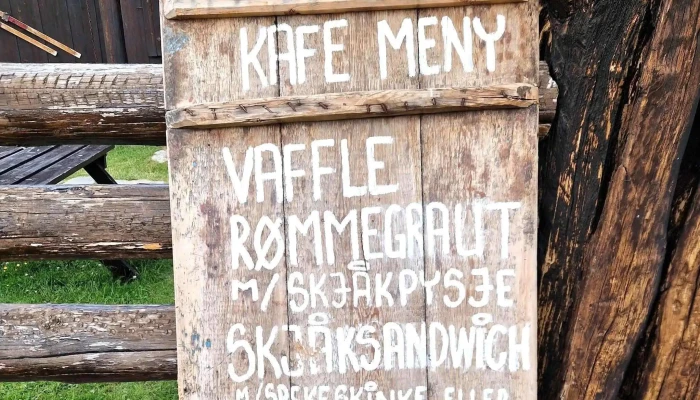 KAFE MENY
VAFFLE
RØMMEGRAUT
M/ SKJÅKPYSJE
SKJÅKSANDWICH
M/SPEKESKINKE ELLER